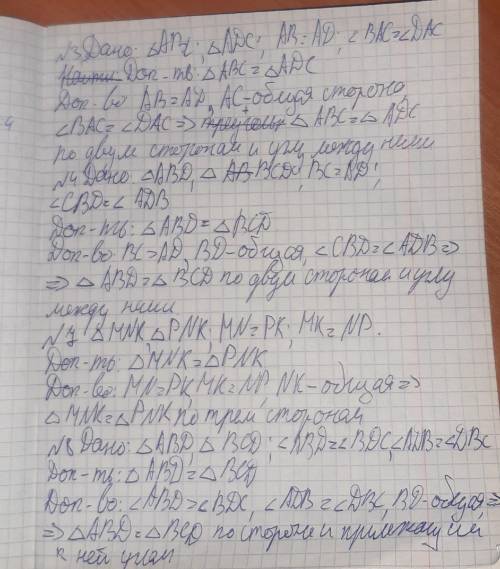 N3 Дано: △ABC; △ADC; AB=AD; ∠BAC=∠DAC
Найти Док-ть: △ABC=△ADC
Док-во AB=AD, AC-общая сторона,
∠BAC=∠DAC⇒ △ABC=△ADC
по двум сторонам и углу между ними
N4 Дано: △ABD, △ BCD, BC=AD;
∠CBD=∠ADB
Док-ть: △ABD=△BCD
Док-во: BC=AD, BD-общая, ∠CBD=∠ADB⇒
⇒ △ABD=△BCD по двум сторонам и углу
между ними
△MNK △PNK; MN=PK; MK=NP.
Док-ть: △MNK=△PNK
Док-во: MN=PK, MK=NP, NK-общая⇒
△MNK=△PNK по трем сторонам
Дано: △ABD, △BCD; ∠ABD=∠BDC, ∠ADB=∠DBC
Док-ть: △ABD=△BCD
Док-во: ∠ABD=∠BDC, ∠ADB=∠DBC, BD-общая⇒
⇒ △ABD=△BCD по стороне и прилежащим
к ней углам